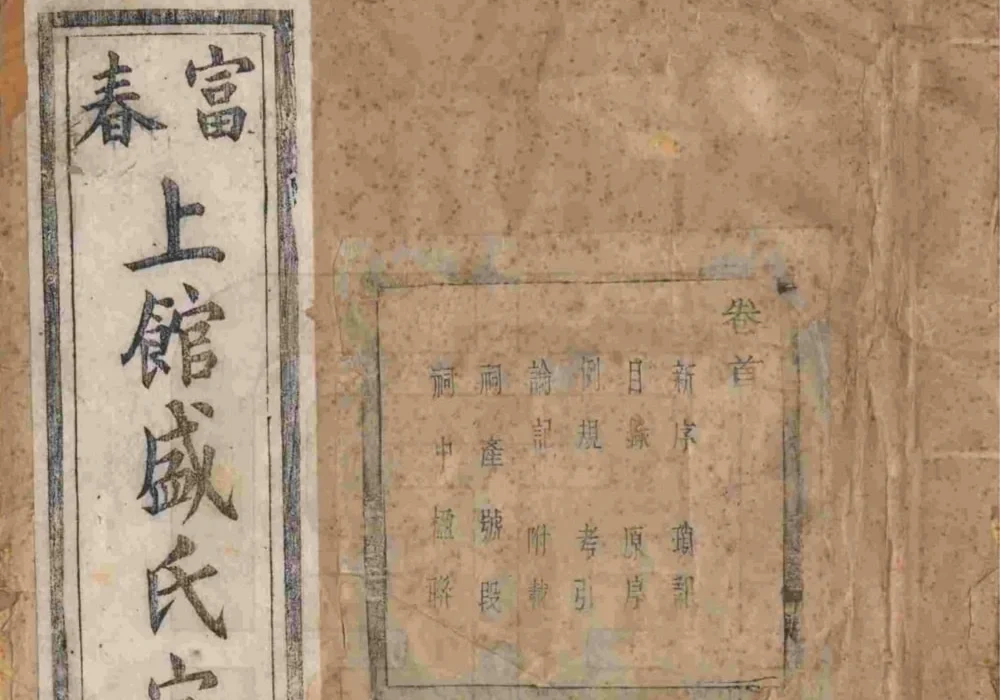 富春
上館盛氏
卷首
新序
目錄 原序
例規 考引
記 附
祠產號段
祠中楹聯